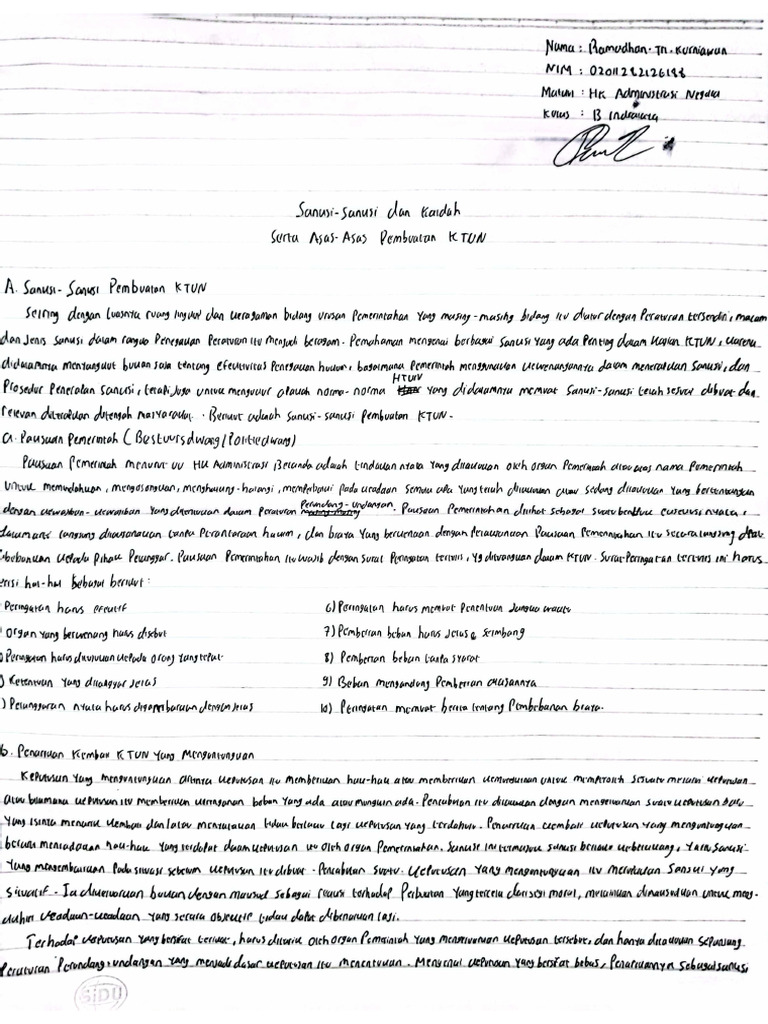 Nama : Ramadhan. Tri. Kurniawan
NIM : 02011282126188
Matkul : HK Administrasi Negara
Kelas : B Indralaya
Sanusi-Sanusi dan Kaidah
Serta Asas-Asas Pembuatan KTUN
A. Sanusi-Sanusi Pembuatan KTUN
Seiring dengan luasnya ruang lingkup dan keragaman bidang urusan Pemerintahan yang masing-masing bidang itu diatur dengan Peraturan tersendiri, macam
dan Jenis Sanusi dalam rangka Penegakan Peraturan itu menjadi beragam. Pemahaman mengenai berbagai sanusi yang ada Penting dalam kajian KTUN, karena
didalamnya menyangkut bukan saja tentang efektivitas Penegakan hukum, bagaimana Pemerintah menggunakan kewenangannya dalam menerapkan Sanusi, dan
Prosedur Penerapan sanusi, tetapi juga untuk mengukur apakah norma-norma HTUN yang didalamnya memuat Sanusi-sanusi telah sesuai dibuat dan
relevan diterapkan ditengah masyarakat. Berikut adalah sanusi-sanusi Pembuatan KTUN.
a. Paksaan Pemerintah (Bestuursdwang/Politiedwang)
Paksaan Pemerintah menurut UU HK Administrasi Belanda adalah tindakan nyata yang dilakukan oleh organ Pemerintah atas nama Pemerintah
untuk memindahkan, mengosongkan, menghalang-halangi, memperbaiki pada keadaan semula apa yang telah dilakukan atau sedang dilakukan yang bertentangan
dengan kewajiban-kewajiban yang ditentukan dalam Peraturan Perundang-undangan. Paksaan Pemerintahan dilihat sebagai suatu bentuk eksekusi nyata,
dalam arti langsung dilaksanakan tanpa Perantaraan hakim, dan biaya yang berkenaan dengan Pelaksanaan Paksaan Pemerintahan itu secara langsung dpat
dibebankan kepada Pihak Pelanggar. Paksaan Pemerintahan itu wajib dengan surat Peringatan tertulis, yg dituangkan dalam KTUN. Surat Peringatan tertulis ini harus
berisi hal-hal sebagai berikut :
) Peringatan harus efektif
) Organ yang berwenang harus disebut
) Peringatan harus ditujukan kepada orang yang tepat
) Ketentuan yang dilanggar jelas
) Pelanggaran nyata harus digambarkan dengan jelas
6) Peringatan harus memuat Penentuan Jangka waktu
7) Pemberian beban harus jelas & seimbang
8) Pemberian beban tanpa syarat
9) Beban mengandung Pemberian alasannya
10) Peringatan memuat berita tentang Pembebanan biaya.
b. Penarikan Kembali KTUN yang Menguntungkan
Keputusan yang menguntungkan artinya keputusan itu memberikan hak-hak atau memberikan kemudahan untuk memperoleh sesuatu melalui keputusan
atau bilamana keputusan itu memberikan keringanan beban yang ada atau mungkin ada. Pencabutan itu dilakukan dengan mengeluarkan suatu keputusan baru
yang isinya menarik kembali dan/atau menyatakan tidak berlaku lagi keputusan yang terdahulu. Penarikan kembali keputusan yang menguntungkan
berarti meniadakan hak-hak yang terdapat dalam keputusan itu oleh organ Pemerintahan. Sanusi ini termasuk sanusi berlaku kebelakang, yaitu sanusi
yang mengembalikan pada situasi sebelum keputusan itu dibuat. Pencabutan suatu keputusan yang menguntungkan itu merupakan Sanusi yang
situatif. Ia dikeluarkan bukan dengan maksud sebagai reaksi terhadap Perbuatan yang tercela dari segi moral, melainkan dimaksudkan untuk meng-
akhiri keadaan-keadaan yang secara objektif tidak dapat dibenarkan lagi.
Terhadap keputusan yang bersifat terikat, harus ditarik oleh organ Pemerintah yang mengeluarkan keputusan tersebut, dan hanya dilakukan sepanjang
Peraturan Perundang-undangan yang menjadi dasar keputusan itu menentukan. Mengenai keputusan yang bersifat bebas, Penarikannya sebagai sanusi
SIDU